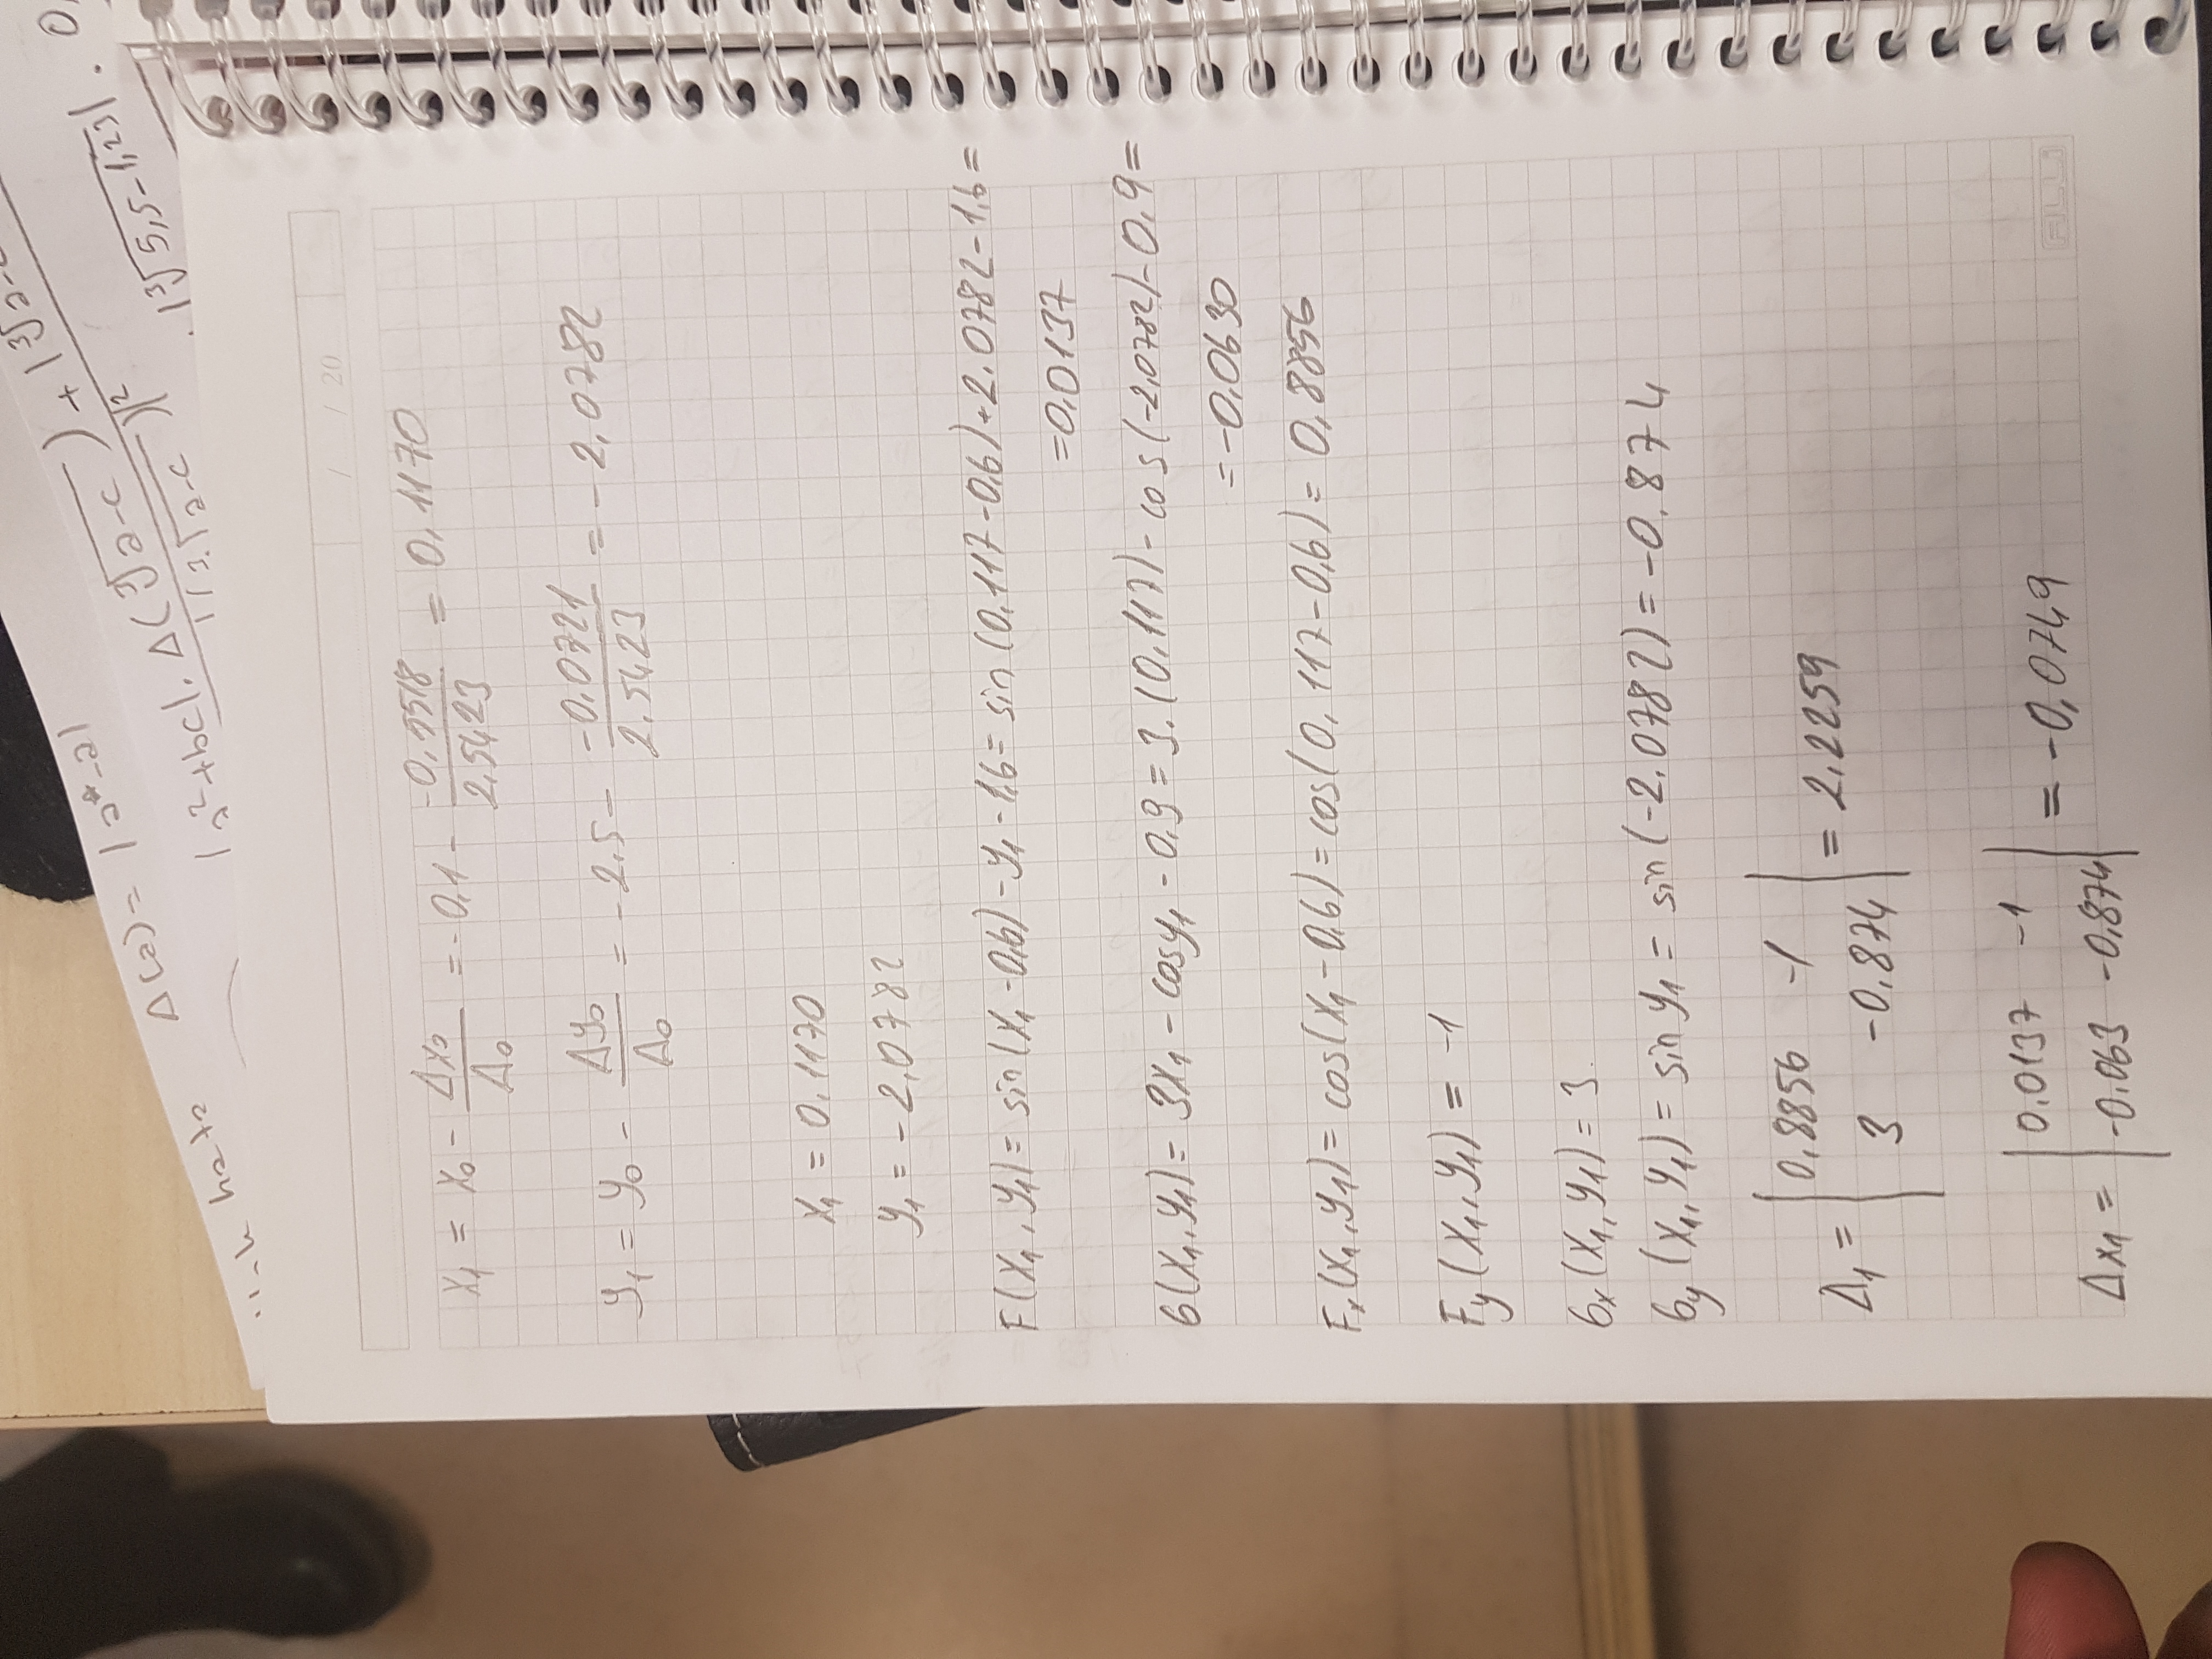 Δ(a) = |a*-a|
hata
|a²+bc|. Δ(∛a-c) + |∛a-c
|(3.√a-c)|²
. |∛5,5-1,23| . 0,
/ / 20
x₁ = x₀ - Δx₀/Δ₀ = -0,1 - -0,5518/2.5423 = 0,1170
y₁ = y₀ - Δy₀/Δ₀ = -2.5 - -0,0721/2.5423 = -2,0782
x₁ = 0,1170
y₁ = -2,0782
F(x₁,y₁) = sin(x₁-0,6)-y₁-1,6 = sin(0,117-0,6)+2.0782-1,6 =
=0,0137
G(x₁,y₁) = 3x₁ - cosy₁ - 0,9 = 3.(0,117) - cos(-2,0782) - 0,9 =
= -0,0630
Fₓ(x₁,y₁) = cos(x₁-0,6) = cos(0,117-0,6) = 0,8856
Fy(x₁,y₁) = -1
Gₓ(x₁,y₁) = 3.
Gy(x₁,y₁) = sin y₁ = sin(-2.0782) = -0.874
Δ₁ = |0,8856 -1
3 -0,874| = 2.2259
Δx₁ = |0.0137 -1
-0.063 -0,874| = -0,0749
ALLi